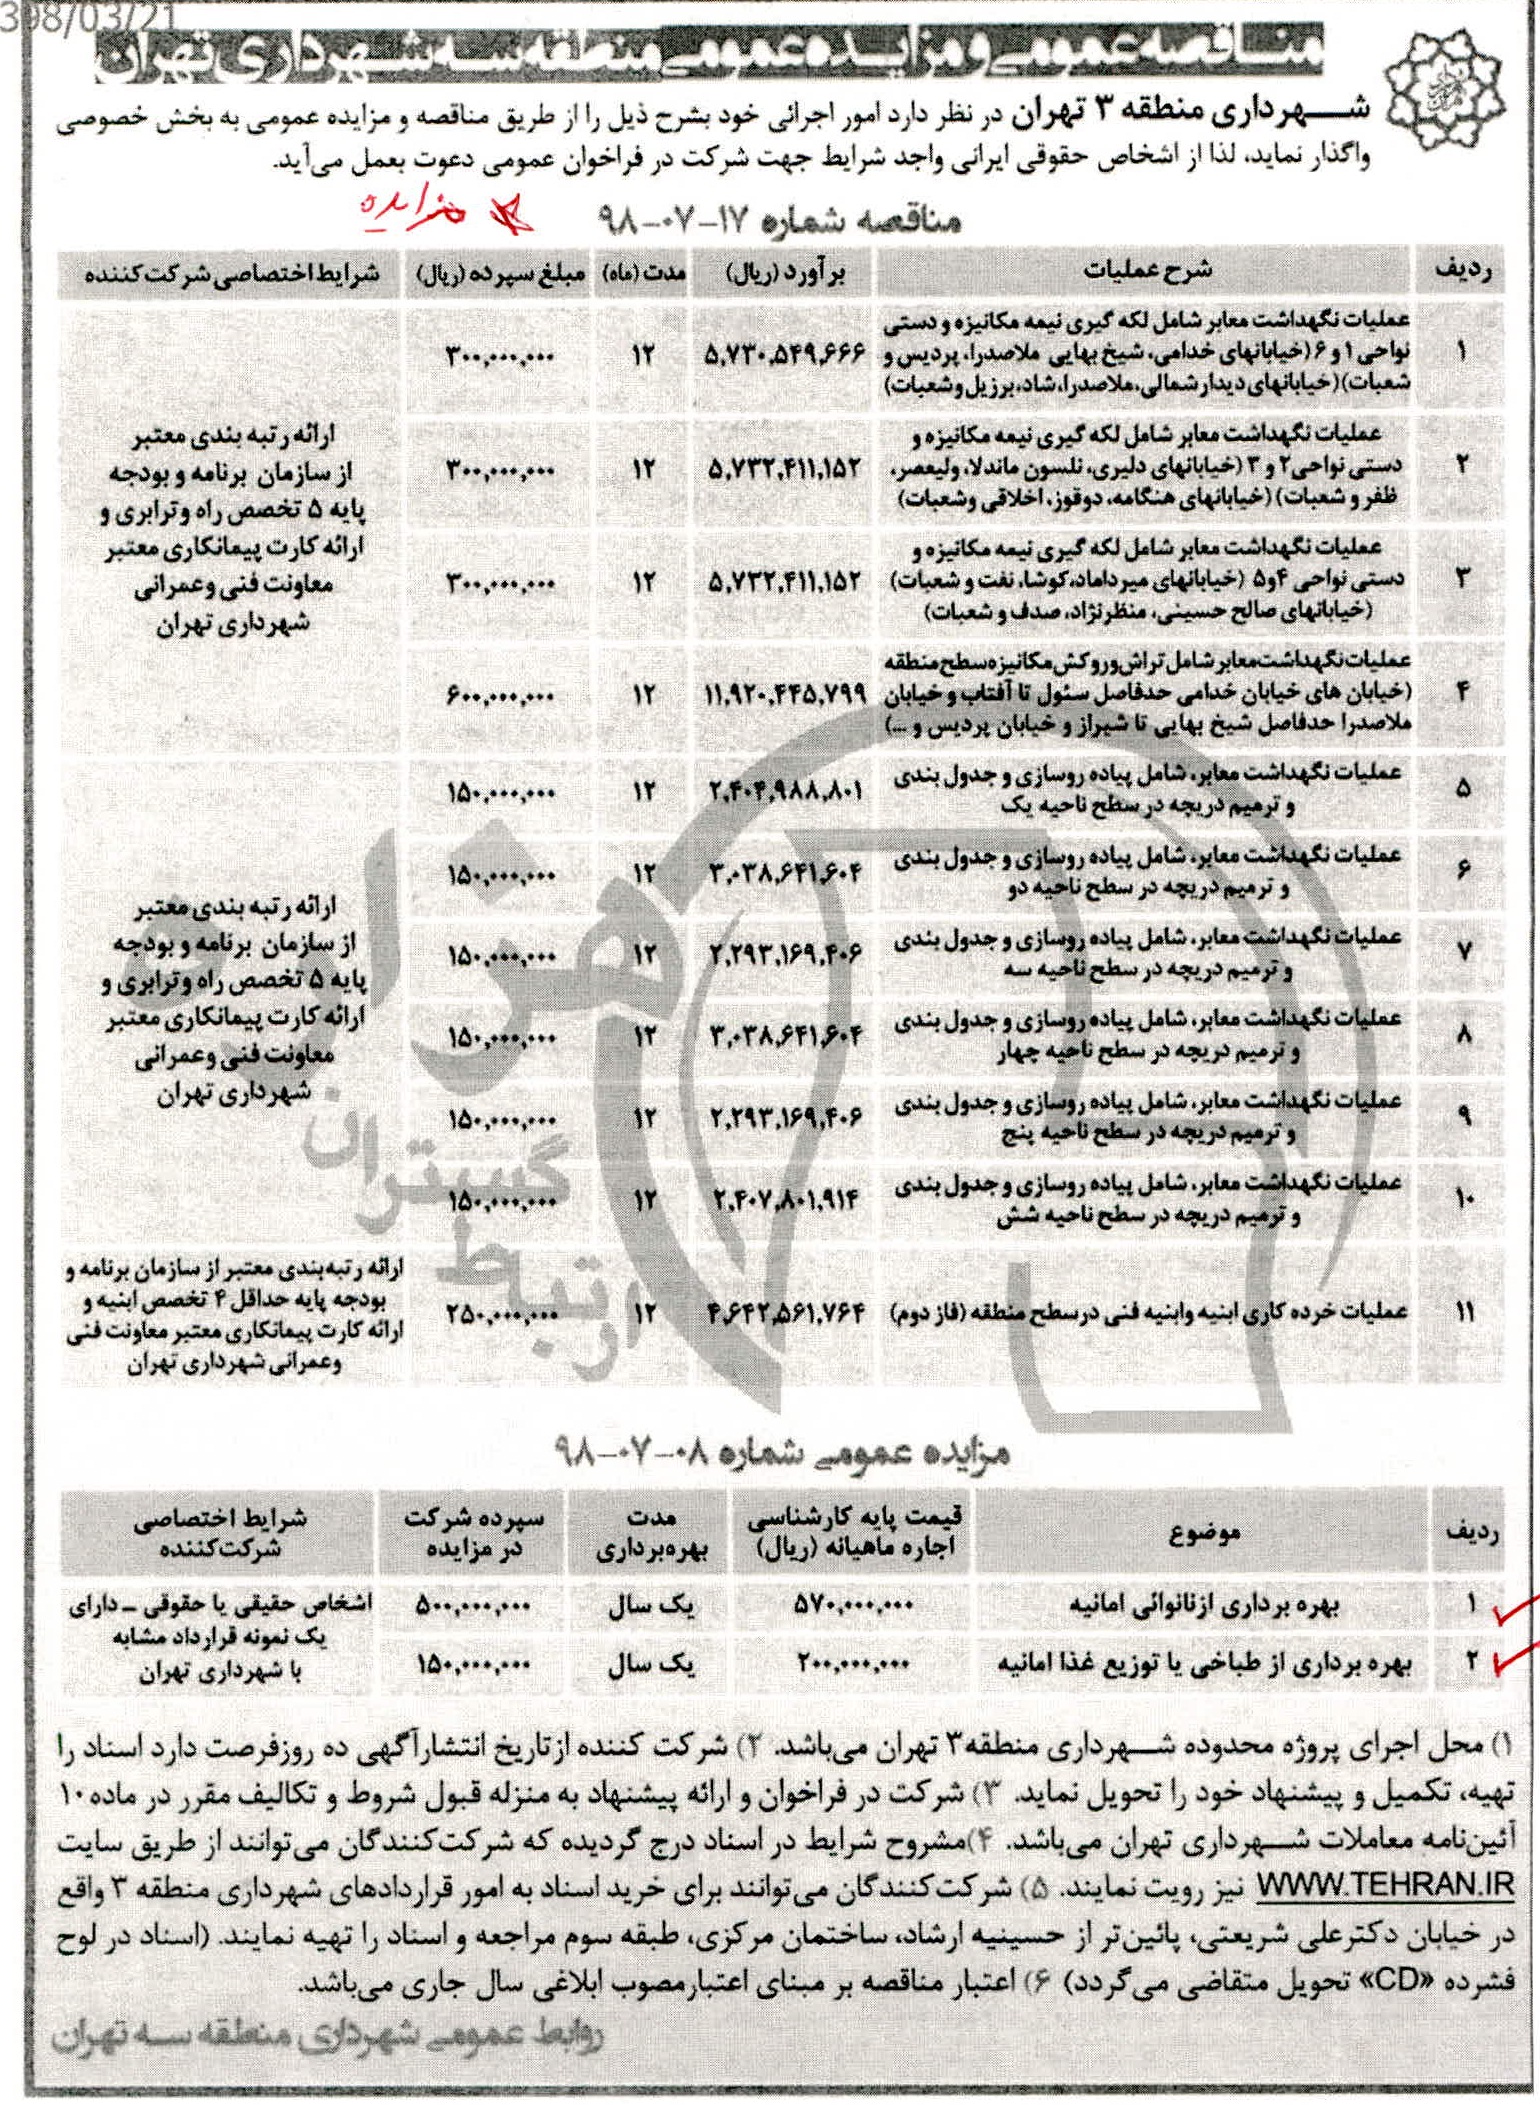 398/03/21
مناقصه عمومی و مزایده عمومی منطقه سه شهرداری تهران
شهرداری منطقه ۳ تهران در نظر دارد امور اجرائی خود بشرح ذیل را از طریق مناقصه و مزایده عمومی به بخش خصوصی
واگذار نماید، لذا از اشخاص حقوقی ایرانی واجد شرایط جهت شرکت در فراخوان عمومی دعوت بعمل می‌آید.
مناقصه شماره ۱۷-۰۷-۹۸
مزایده
ردیف شرح عملیات برآورد (ریال) مدت (ماه) مبلغ سپرده (ریال) شرایط اختصاصی شرکت‌کننده
عملیات نگهداشت معابر شامل لکه گیری نیمه مکانیزه و دستی
۱ نواحی ۱ و ۶ (خیابانهای خدامی، شیخ بهایی ملاصدرا، پردیس و ۵,۷۳۰,۵۴۹,۶۶۶ ۱۲ ۳۰۰,۰۰۰,۰۰۰
شعبات)(خیابانهای دیدار شمالی،ملاصدرا،شاد،برزیل وشعبات)
عملیات نگهداشت معابر شامل لکه گیری نیمه مکانیزه و
۲ دستی نواحی۲ و ۳ (خیابانهای دلیری، نلسون ماندلا، ولیعصر، ۵,۷۳۲,۴۱۱,۱۵۲ ۱۲ ۳۰۰,۰۰۰,۰۰۰
ظفر و شعبات) (خیابانهای هنگامه، دوقوز، اخلاقی وشعبات)
عملیات نگهداشت معابر شامل لکه گیری نیمه مکانیزه و
۳ دستی نواحی ۴و۵ (خیابانهای میرداماد،کوشا، نفت و شعبات) ۵,۷۳۲,۴۱۱,۱۵۲ ۱۲ ۳۰۰,۰۰۰,۰۰۰
(خیابانهای صالح حسینی، منظرنژاد، صدف و شعبات)
عملیات نگهداشت معابر شامل تراش و روکش مکانیزه سطح منطقه
۴ (خیابان های خیابان خدامی حدفاصل سئول تا آفتاب و خیابان ۱۱,۹۲۰,۴۴۵,۷۹۹ ۱۲ ۶۰۰,۰۰۰,۰۰۰
ملاصدرا حدفاصل شیخ بهایی تا شیراز و خیابان پردیس و ...)
ارائه رتبه بندی معتبر
از سازمان برنامه و بودجه
پایه ۵ تخصص راه وترابری و
ارائه کارت پیمانکاری معتبر
معاونت فنی وعمرانی
شهرداری تهران
عملیات نگهداشت معابر، شامل پیاده روسازی و جدول بندی
۵ و ترمیم دریچه در سطح ناحیه یک ۲,۴۰۴,۹۸۸,۸۰۱ ۱۲ ۱۵۰,۰۰۰,۰۰۰
عملیات نگهداشت معابر، شامل پیاده روسازی و جدول بندی
۶ و ترمیم دریچه در سطح ناحیه دو ۳,۰۳۸,۶۴۱,۶۰۴ ۱۲ ۱۵۰,۰۰۰,۰۰۰
عملیات نگهداشت معابر، شامل پیاده روسازی و جدول بندی
۷ و ترمیم دریچه در سطح ناحیه سه ۲,۲۹۳,۱۶۹,۴۰۶ ۱۲ ۱۵۰,۰۰۰,۰۰۰
عملیات نگهداشت معابر، شامل پیاده روسازی و جدول بندی
۸ و ترمیم دریچه در سطح ناحیه چهار ۳,۰۳۸,۶۴۱,۶۰۴ ۱۲ ۱۵۰,۰۰۰,۰۰۰
عملیات نگهداشت معابر، شامل پیاده روسازی و جدول بندی
۹ و ترمیم دریچه در سطح ناحیه پنج ۲,۲۹۳,۱۶۹,۴۰۶ ۱۲ ۱۵۰,۰۰۰,۰۰۰
عملیات نگهداشت معابر، شامل پیاده روسازی و جدول بندی
۱۰ و ترمیم دریچه در سطح ناحیه شش ۲,۴۰۷,۸۰۱,۹۱۴ ۱۲ ۱۵۰,۰۰۰,۰۰۰
ارائه رتبه بندی معتبر
از سازمان برنامه و بودجه
پایه ۵ تخصص راه وترابری و
ارائه کارت پیمانکاری معتبر
معاونت فنی وعمرانی
شهرداری تهران
۱۱ عملیات خرده کاری ابنیه وابنیه فنی درسطح منطقه (فاز دوم) ۴,۶۴۲,۵۶۱,۷۶۴ ۱۲ ۲۵۰,۰۰۰,۰۰۰
ارائه رتبه‌بندی معتبر از سازمان برنامه و
بودجه پایه حداقل ۴ تخصص ابنیه و
ارائه کارت پیمانکاری معتبر معاونت فنی
وعمرانی شهرداری تهران
هزاره
گستران
ارتباط
مزایده عمومی شماره ۰۸-۰۷-۹۸
ردیف موضوع قیمت پایه کارشناسی اجاره ماهیانه (ریال) مدت بهره‌برداری سپرده شرکت در مزایده شرایط اختصاصی شرکت‌کننده
۱ بهره برداری ازنانوائی امانیه ۵۷۰,۰۰۰,۰۰۰ یک سال ۵۰۰,۰۰۰,۰۰۰
۲ بهره برداری از طباخی یا توزیع غذا امانیه ۲۰۰,۰۰۰,۰۰۰ یک سال ۱۵۰,۰۰۰,۰۰۰
اشخاص حقیقی یا حقوقی – دارای
یک نمونه قرارداد مشابه
با شهرداری تهران
۱) محل اجرای پروژه محدوده شهرداری منطقه۳ تهران می‌باشد. ۲) شرکت کننده ازتاریخ انتشارآگهی ده روزفرصت دارد اسناد را
تهیه، تکمیل و پیشنهاد خود را تحویل نماید. ۳) شرکت در فراخوان و ارائه پیشنهاد به منزله قبول شروط و تکالیف مقرر در ماده۱۰
آئین‌نامه معاملات شهرداری تهران می‌باشد. ۴)مشروح شرایط در اسناد درج گردیده که شرکت‌کنندگان می‌توانند از طریق سایت
WWW.TEHRAN.IR نیز رویت نمایند. ۵) شرکت‌کنندگان می‌توانند برای خرید اسناد به امور قراردادهای شهرداری منطقه ۳ واقع
در خیابان دکترعلی شریعتی، پائین‌تر از حسینیه ارشاد، ساختمان مرکزی، طبقه سوم مراجعه و اسناد را تهیه نمایند. (اسناد در لوح
فشرده «CD» تحویل متقاضی می‌گردد) ۶) اعتبار مناقصه بر مبنای اعتبارمصوب ابلاغی سال جاری می‌باشد.
روابط عمومی شهرداری منطقه سه تهران